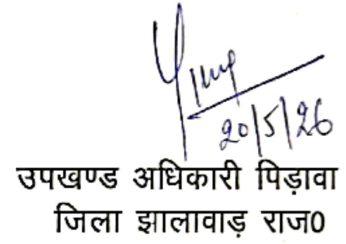 20/5/26
उपखण्ड अधिकारी पिड़ावा
जिला झालावाड़ राज0